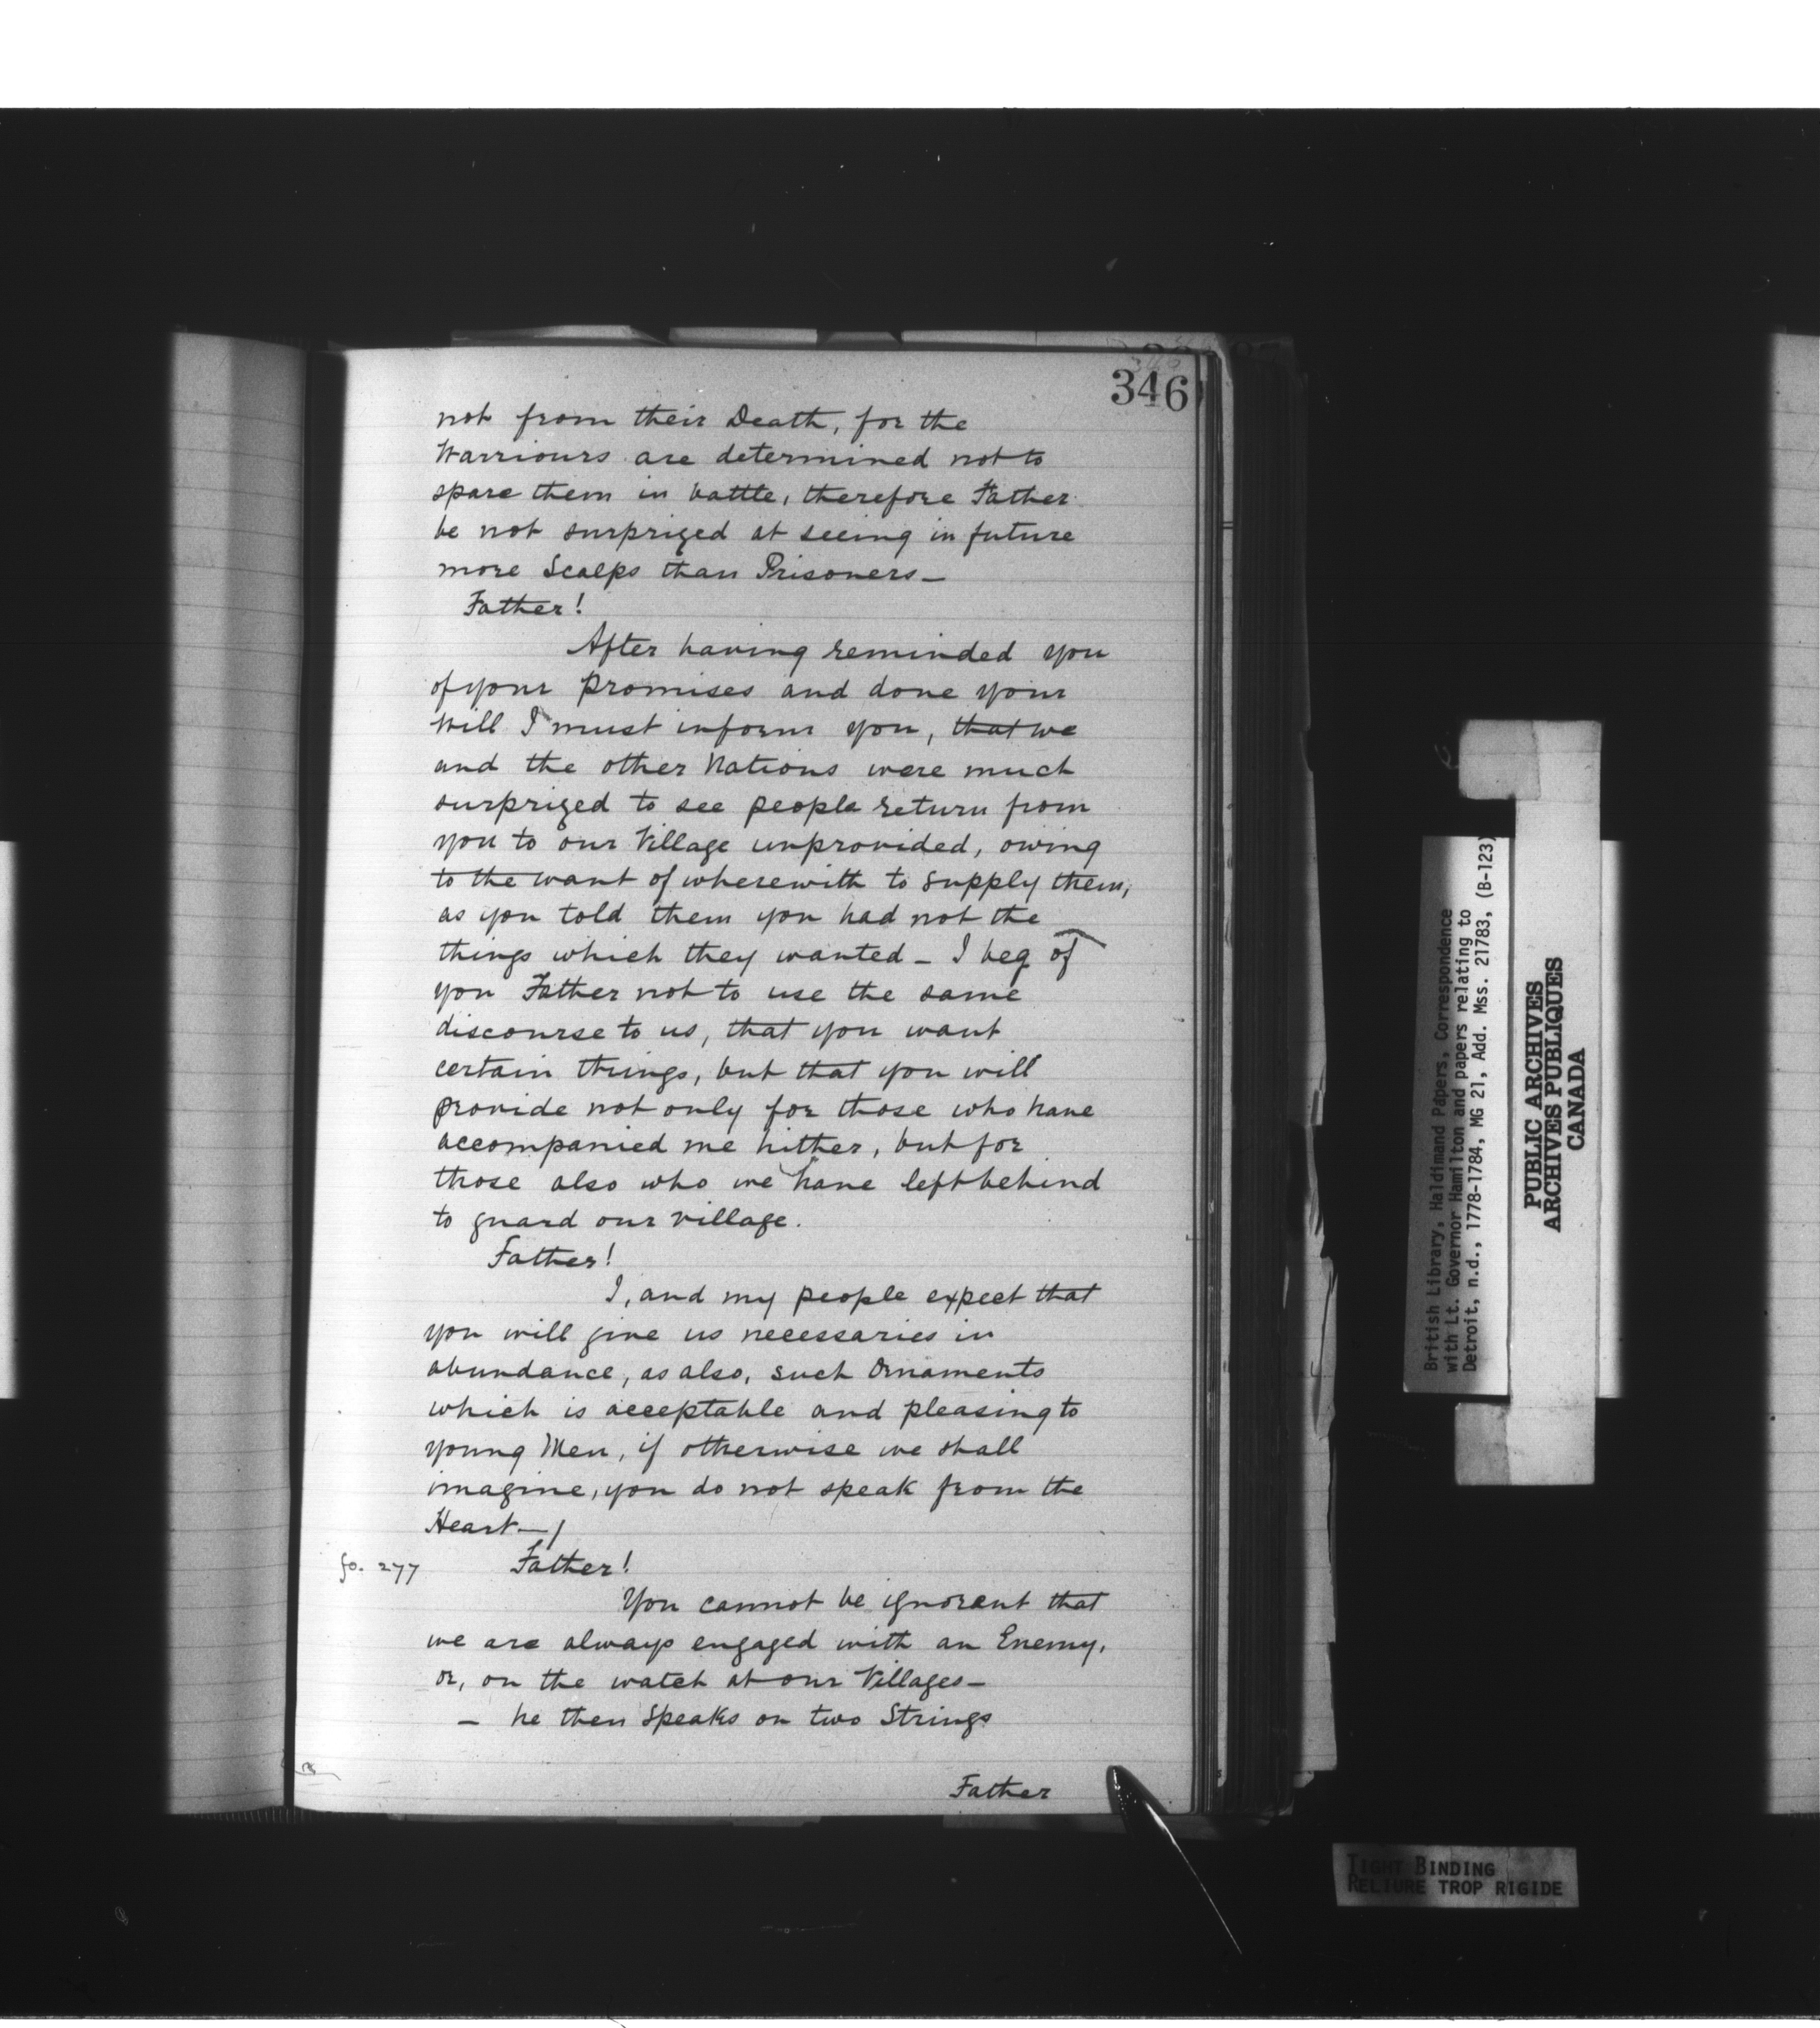 346
not from their Death, for the
Warriours are determined not to
spare them in battle, therefore Father
be not surprized at seeing in future
more Scalps than Prisoners—
Father!
After having reminded you
of your promises and done your
Will I must inform you, that we
and the other Nations were much
surprized to see people return from
you to our Village unprovided, owing
to the want of wherewith to supply them,
as you told them you had not the
things which they wanted — I beg of
you Father not to use the same
discourse to us, that you want
certain things, but that you will
provide not only for those who have
accompanied me hither, but for
those also who we have left behind
to guard our village.
Father!
I, and my people expect that
you will give us necessaries in
abundance, as also, such Ornaments
which is acceptable and pleasing to
young Men, if otherwise we shall
imagine, you do not speak from the
Heart—/
fo. 277 Father!
You cannot be ignorant that
we are always engaged with an Enemy,
or, on the watch at our Villages—
— he then Speaks on two Strings
Father
British Library, Haldimand Papers, Correspondence
with Lt. Governor Hamilton and papers relating to
Detroit, n.d., 1778-1784, MG 21, Add. Mss. 21783, (B-123)
PUBLIC ARCHIVES
ARCHIVES PUBLIQUES
CANADA
TIGHT BINDING
RELIURE TROP RIGIDE